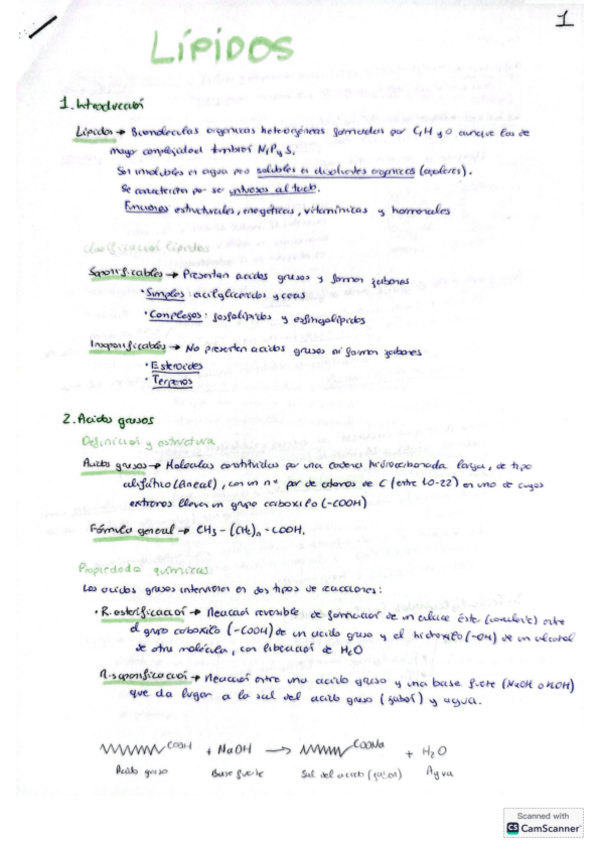 1
LÍPIDOS
1. Introducción
Lípidos → Biomoleculas organicas heterogéneas formadas por C, H y O aunque los de
mayor complejidad tambien N, P y S.
Son insolubles en agua pero solubles en disolventes organicos (apolares).
Se caracterizan por ser untuosos al tacto.
Funciones estructurales, energéticas, vitamínicas y hormonales
Clasificación lípidos
Saponificables → Presentan acidos grasos y forman jabones
· Simples: acilglicéridos y ceras
· Complejos: fosfolípidos y esfingolípidos
Insaponificables → No presentan acidos grasos ni forman jabones
· Esteroides
· Terpenos
2. Acidos grasos
Definicion y estructura
Acidos grasos → Moleculas constituidas por una cadena hidrocarbonada larga, de tipo
alifático (lineal), con un nº par de atomos de C (entre 10-22) en uno de cuyos
extremos lleva un grupo carboxilo (-COOH)
Fórmula general → CH3 - (CH2)n - COOH.
Propiedades químicas
Los acidos grasos intervienen en dos tipos de reacciones:
· R. esterificación → Reaccion reversible de formacion de un enlace éster (covalente) entre
el grupo carboxilo (-COOH) de un acido graso y el hidroxilo (-OH) de un alcohol
de otra molécula, con liberación de H2O
R. saponificación → Reaccion entre un acido graso y una base fuerte (NaOH o KOH)
que da lugar a la sal del acido graso (jabón) y agua.
COOH + NaOH → COONa + H2O
Acido graso Base fuerte Sal del acido (jabon) Agua
Scanned with
CS CamScanner